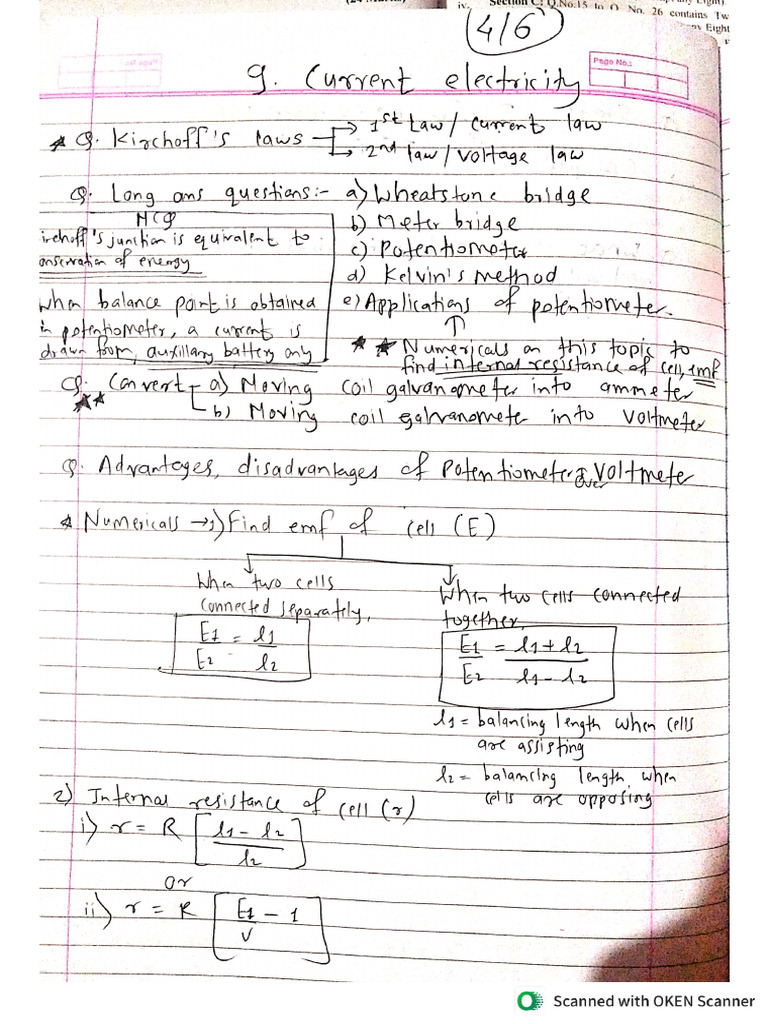 iv. Section C: Q.No.15 to Q. No. 26 contains Tw
Eight
4/6
Page No.:
9. Current electricity
* Q. Kirchoff's laws → 1st Law / current law
→ 2nd law / voltage law
Q. Long ans questions:- a) Wheatstone bridge
b) Meter bridge
c) Potentiometer
d) Kelvin's method
e) Applications of potentiometer.
↑
** Numericals on this topic to
find internal resistance of cell, emf
MCQ
irchoff's junction is equivalent to
onservation of energy
When balance point is obtained
in potentiometer, a current is
drawn from, auxillary battery only
Q. Convert a) Moving coil galvanometer into ammeter
** b) Moving coil galvanomete into voltmeter
Q. Advantages, disadvantages of Potentiometer over voltmete
* Numericals → 1) Find emf of cell (E)
When two cells
connected separately,
E1/E2 = l1/l2
When two cells connected
together,
E1/E2 = l1 + l2/l1 - l2
l1 = balancing length when cells
are assisting
l2 = balancing length when
cells are opposing
2) Internal resistance of cell (r)
i) r = R [l1 - l2/l2]
or
ii) r = R [E1/V - 1]
Scanned with OKEN Scanner